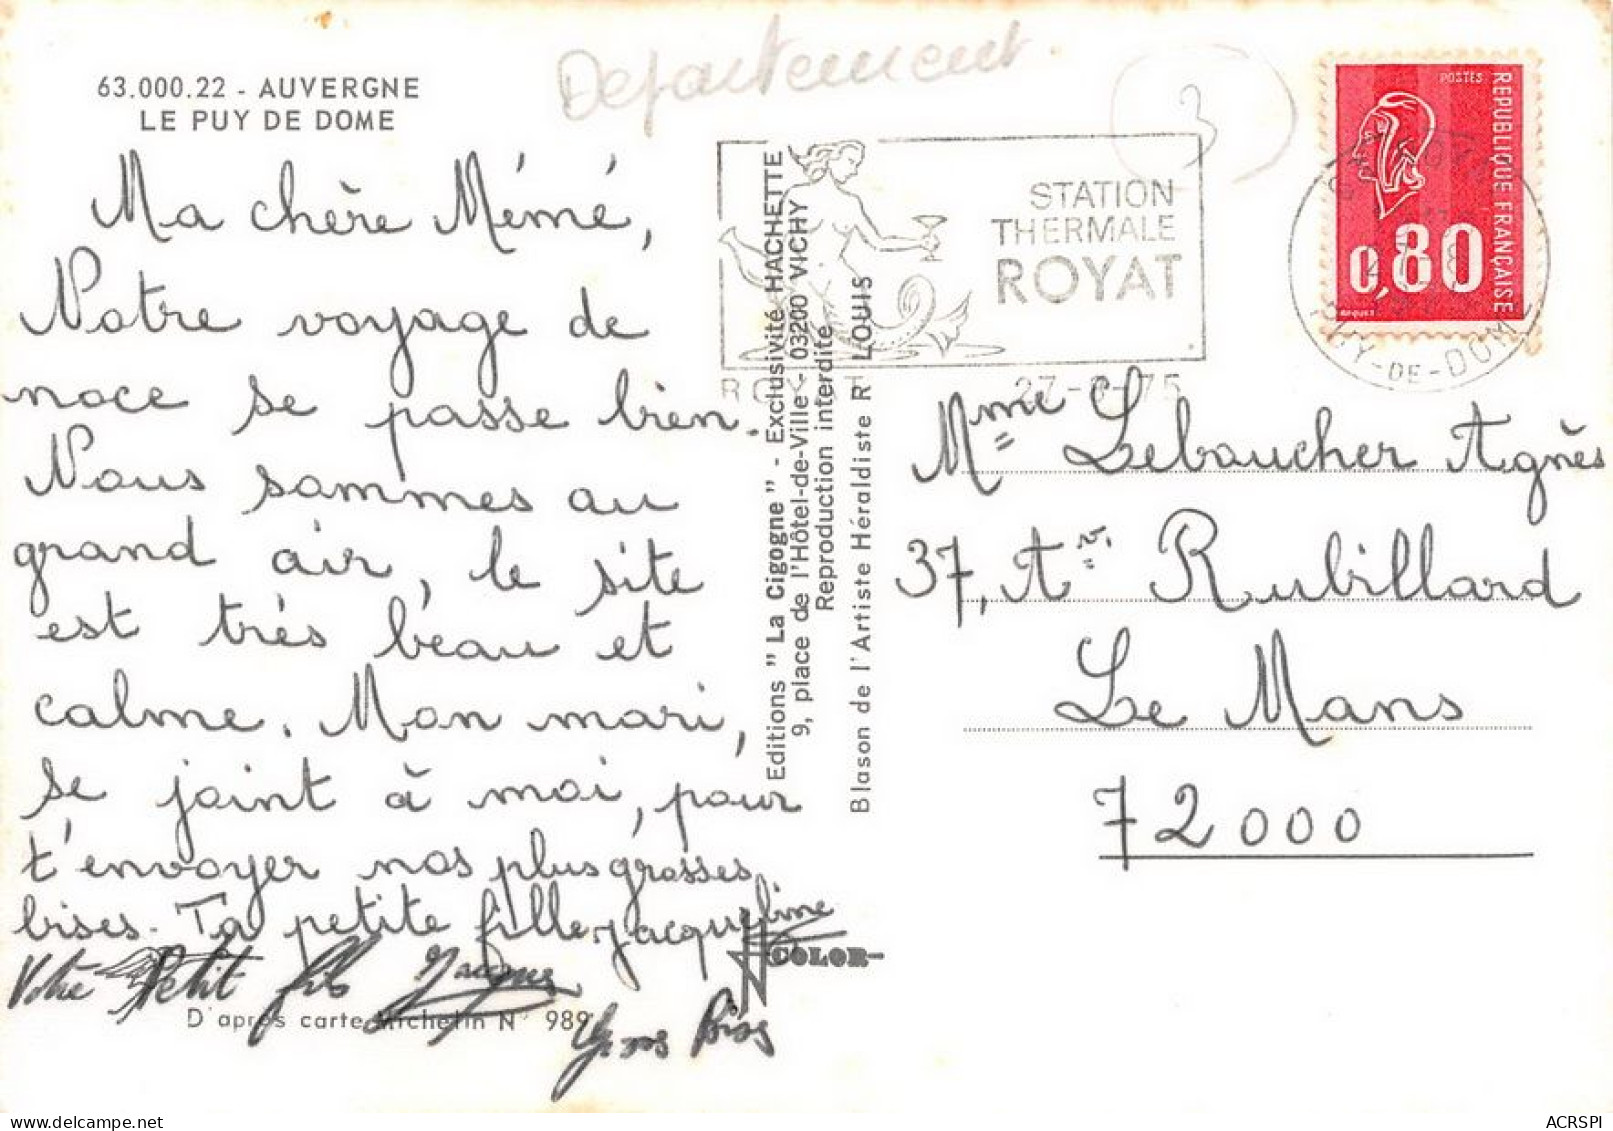 63.000.22 - AUVERGNE
LE PUY DE DOME
Departement
3
Ma chère Mémé,
Notre voyage de
noce se passe bien.
Nous sommes au
grand air, le site
est très beau et
calme. Mon mari,
se joint à moi, pour
t'envoyer nos plus grosses
bises. Ta petite fille, Jacqueline
Votre Petit fils Jacques
Gros Bisos
D'après carte Michelin N° 989
COLOR-
Editions "La Cigogne" - Exclusivité HACHETTE
9, place de l'Hôtel-de-Ville - 03200 VICHY
Reproduction interdite
Blason de l'Artiste Héraldiste R LOUIS
STATION
THERMALE
ROYAT
ROYAT
27-8-75
PUY-DE-DOME
POSTES
REPUBLIQUE FRANÇAISE
0,80
BEQUET
Mme Lebaucher Agnès
37, Av. Rubillard
Le Mans
72000
ACRSPI